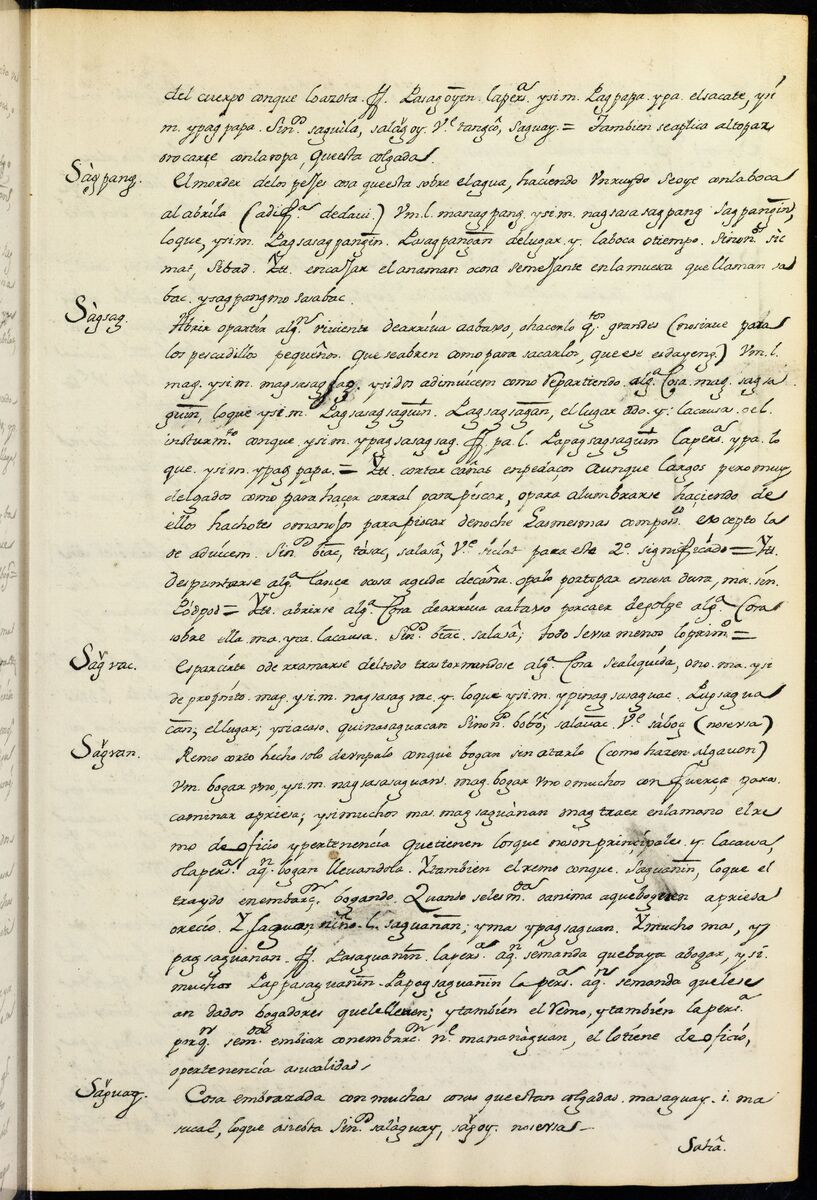 del cuerpo conque loazota. ff. Pasagoyen. lapers.ª ysim. Pagpapa. ypa. elsacate, ysi
m. ypagpapa. Sin.º saguila, salàgoy. V.e tangcô, Saguay. = Tambien seaplica altopar
orocarse conlaropa, questa colgada.
Sàgpang. El morder delos pesses cosa queesta sobre elagua, haciendo Vnruydo Seoye conlaboca
al abrila (adif.ª dedaui.) Vm. l. managpang. ysim. nagsasasagpang Sagpangin,
loque, ysim. Pagsasagpangin. Pasagpangan delugar. y. laboca otiempo. Sinon.º sic
mat, Sibad. Ytt. encassar el anaman ocosa semessante enla muesca que llaman sa
bac. ysagpangmo sasabac.
Sàgsag. Abrir opartir alg.n viviente dearriva aabaxo, ohacerlo q.tos grandes (nosirve para
los pescadillos pequeños. Que seabren como para sacarlos, que ese es dayeng) Vm. l.
mag. ysim. magsasagsag. ysidos adinuicem como Repartiendo. alg.ª Cosa. mag. sagsa
guin, loque ysim. Pagsasagsaguin. Pagsagsagan, el lugar odo. y. lacausa. oel
insturm.to conque. ysim. ypagsasagsag. ff pa. l. Papagsagsaguin lapers.ª ypa. lo
que. ysim. ypagpapa. = Ytt. cortar cañas enpedaços Aunque largos pero muy
delgados como para haçer corral para péscar, opara alumbrarse haçiendo de
ellos hachotes omanojos para piscar denoche Lasmesmas composs.es excepto la
de aduicem. Sin.º biac, tasac, salasâ, V.e siclat para este 2.º significado = Ytt.
despuntarse alg.ª lança ocosa aguda decaña. opalo portopar encosa dura, ma. sin.
Pódpod = Ytt. abrirse alg.ª Cosa dearriva aabaxo porcaer degolpe alg.ª Cosa
sobre ella. ma. yca. lacausa. Sin.º biac. salasâ; todo sevsa menos loprim.º =
Sàgvac. Esparcirse oderramarse deltodo trastornandose alg.ª Cosa sealiquida, ono. ma. ysi
de proposito. mag. ysim. nagsasagvac. y. loque ysim. ypinagsasaguac. Pagsagua
can, ellugar; ysiacaso. quinasaguacan Sinon.º bobô, salauac. V.e sàbog (nosevsa)
Sàgvan. Remo corto hecho solo devnpalo conque bogan sin atarlo (como hazen Algauon)
Vm. bogar vno, ysim. nagsasasaguan. mag. bogar vno omuchos con fuerça para
caminar apriesa; ysimuchos mas. magsaguànan mag traer enlamano el re
mo deoficio ypertenencia Quetienen losque noson principales. y. lacausa,
olapers.ª aq.n bogan llevandola. Ytambien el remo conque. Saguanin, loque el
traydo enembarc.n bogando. Quando seles m.da oanima aquebogueen apriesa
orecio. Y. saguan niño. l. saguanan; yma ypagsaguan. Ymucho mas, y
pagsaguanan. ff. Pasaguanin. lapers.ª aq.n semanda quebaya abogar, ysi.
muchos Pagpasaguanin. Papagsaguanin lapers.ª aq.n semanda queles
an dados bogadores quelelleven; ytambien el Remo, ytambien lapers.ª
porq.n sem.da embiar conembarc.n n.l mananàguan, el lotiene de oficio,
opertenencia asucalidad.
Sàguag. Cosa embrazada con muchas cosas que estan colgadas. masaguay. i. ma
sucal, loque asiesta Sin.º salàguay, sàgoy. nosevsa
Satiâ.